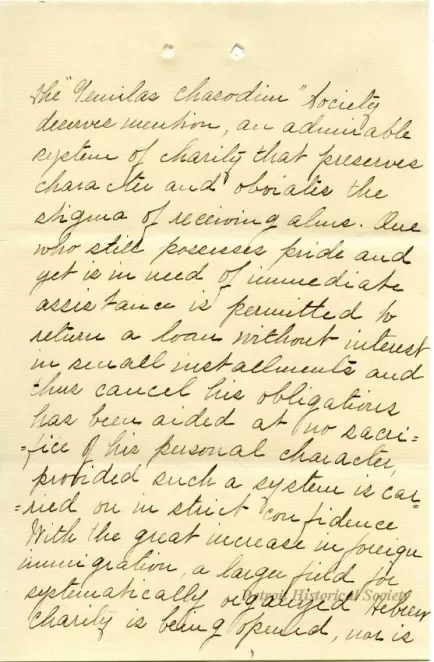 The "Gemilas Chasodim" Society
deserves mention, an admirable
system of charity that preserves
character and obviates the
stigma of receiving alms. One
who still possesses pride and
yet is in need of immediate
assistance is permitted to
return a loan without interest
in small installments and
thus cancel his obligations
has been aided at no sacri=
=fice of his personal character,
provided such a system is car=
=ried on in strict confidence
With the great increase in foreign
immigration, a larger field for
systematically organized Hebrew
charity is being opened, nor is
Detroit Historical Society